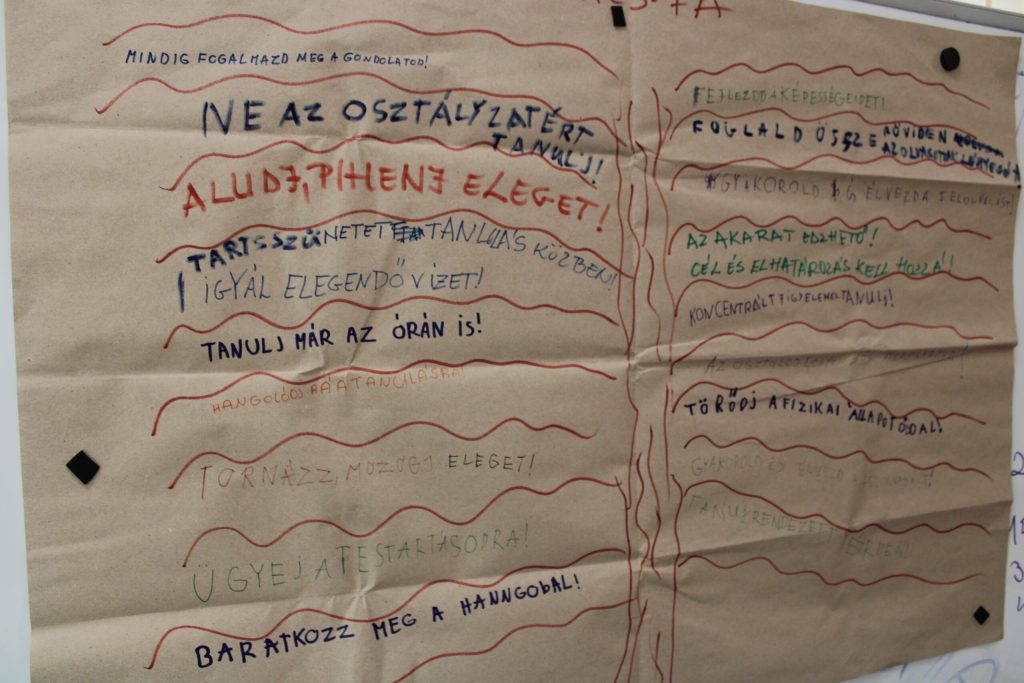 MINDIG FOGALMAZD MEG A GONDOLATOD!
NE AZ OSZTÁLYZATÉRT
TANULJ!
ALUDJ, PIHENJ ELEGET!
TARTS SZÜNETET TANULÁS KÖZBEN!
IGYÁL ELEGENDŐ VIZET!
TANULJ MÁR AZ ÓRÁN IS!
HANGOLÓDJ RÁ A TANULÁSRA!
TORNÁZZ, MOZOGJ ELEGET!
ÜGYEJ A TESTARTÁSODRA!
BARATKOZZ MEG A HANNGODAL!
FEJLEZDD A KÉPESSÉGEIDET!
FOGLALD ÖSSZE RÖVIDEN
AZ OLVASOTTAK LÉNYEGÉT!
GYAKOROLD ÉS ÉLVEZD A FELOLVASÁST!
AZ AKARAT EDZHETŐ!
CÉL ÉS ELHATÁROZÁS KELL HOZZÁ!
KONCENTRÁLT FIGYELEMEL TANULJ!
AZ
TÖRŐDJ A FIZIKAI ÁLLAPOTODDAL!
GYAKOROLD ÉS ÉLVEZD
TANULJ RENDEZETT TÉRBEN!